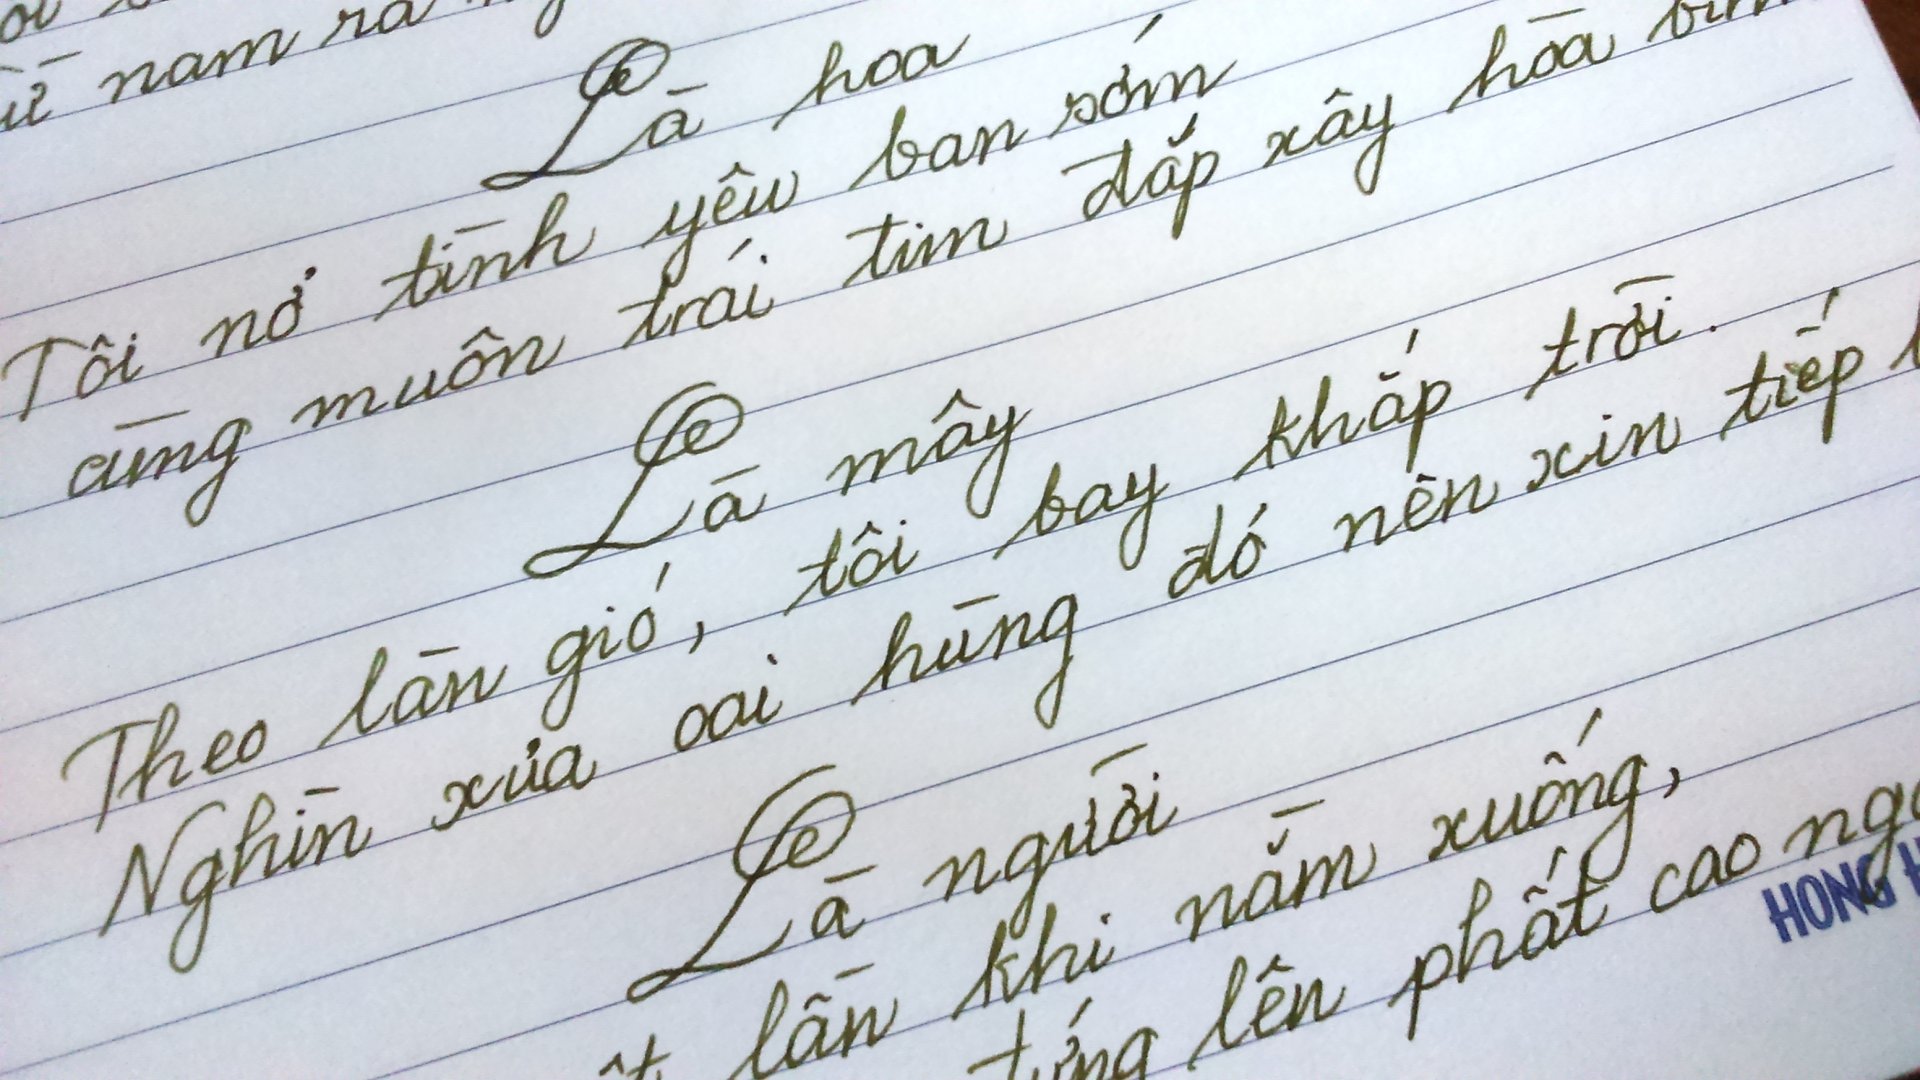 nam ra
Là hoa
Tôi nở tình yêu ban sớm
cùng muôn trái tim đắp xây hòa bình
Là mây
Theo làn gió, tôi bay khắp trời.
Nghìn xưa oai hùng đó nên xin tiếp
Là người
lần khi nằm xuống,
lên phất cao
HONG